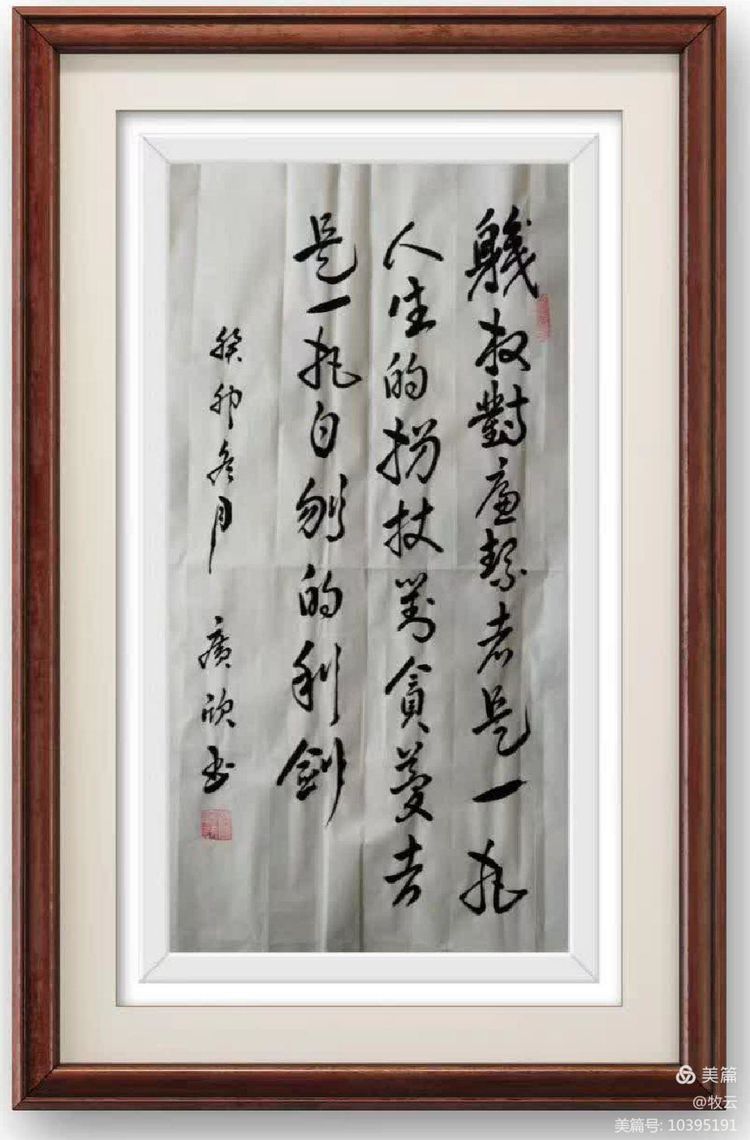 軄权對廉潔者是一把
人生的拐杖對貪婪者
是一把自刎的利劍
癸卯冬月 廣欣书
美篇
@牧云
美篇号: 10395191